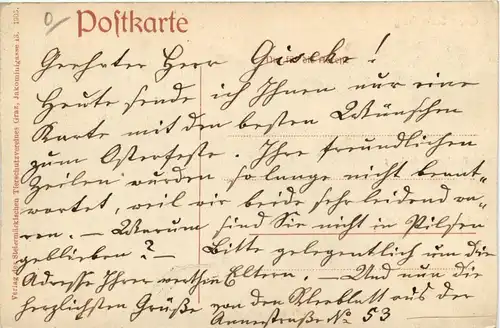 Postkarte
Geehrter Herr Giseke!
Heute sende ich Ihnen nur eine
Karte mit den besten Wünschen
zum Osterfeste. Ihre freundlichen
Zeilen wurden so lange nicht beant-
wortet weil wir beide sehr leidend wa-
ren. – Warum sind Sie nicht in Pilsen
geblieben? – Bitte gelegentlich um die
Adresse Ihrer werthen Eltern. – Und nun die
herzlichsten Grüße von dem Kleeblatt aus der
Annenstraße No 53
Verlag des Steiermärkischen Tierschutzvereines Graz, 1905.